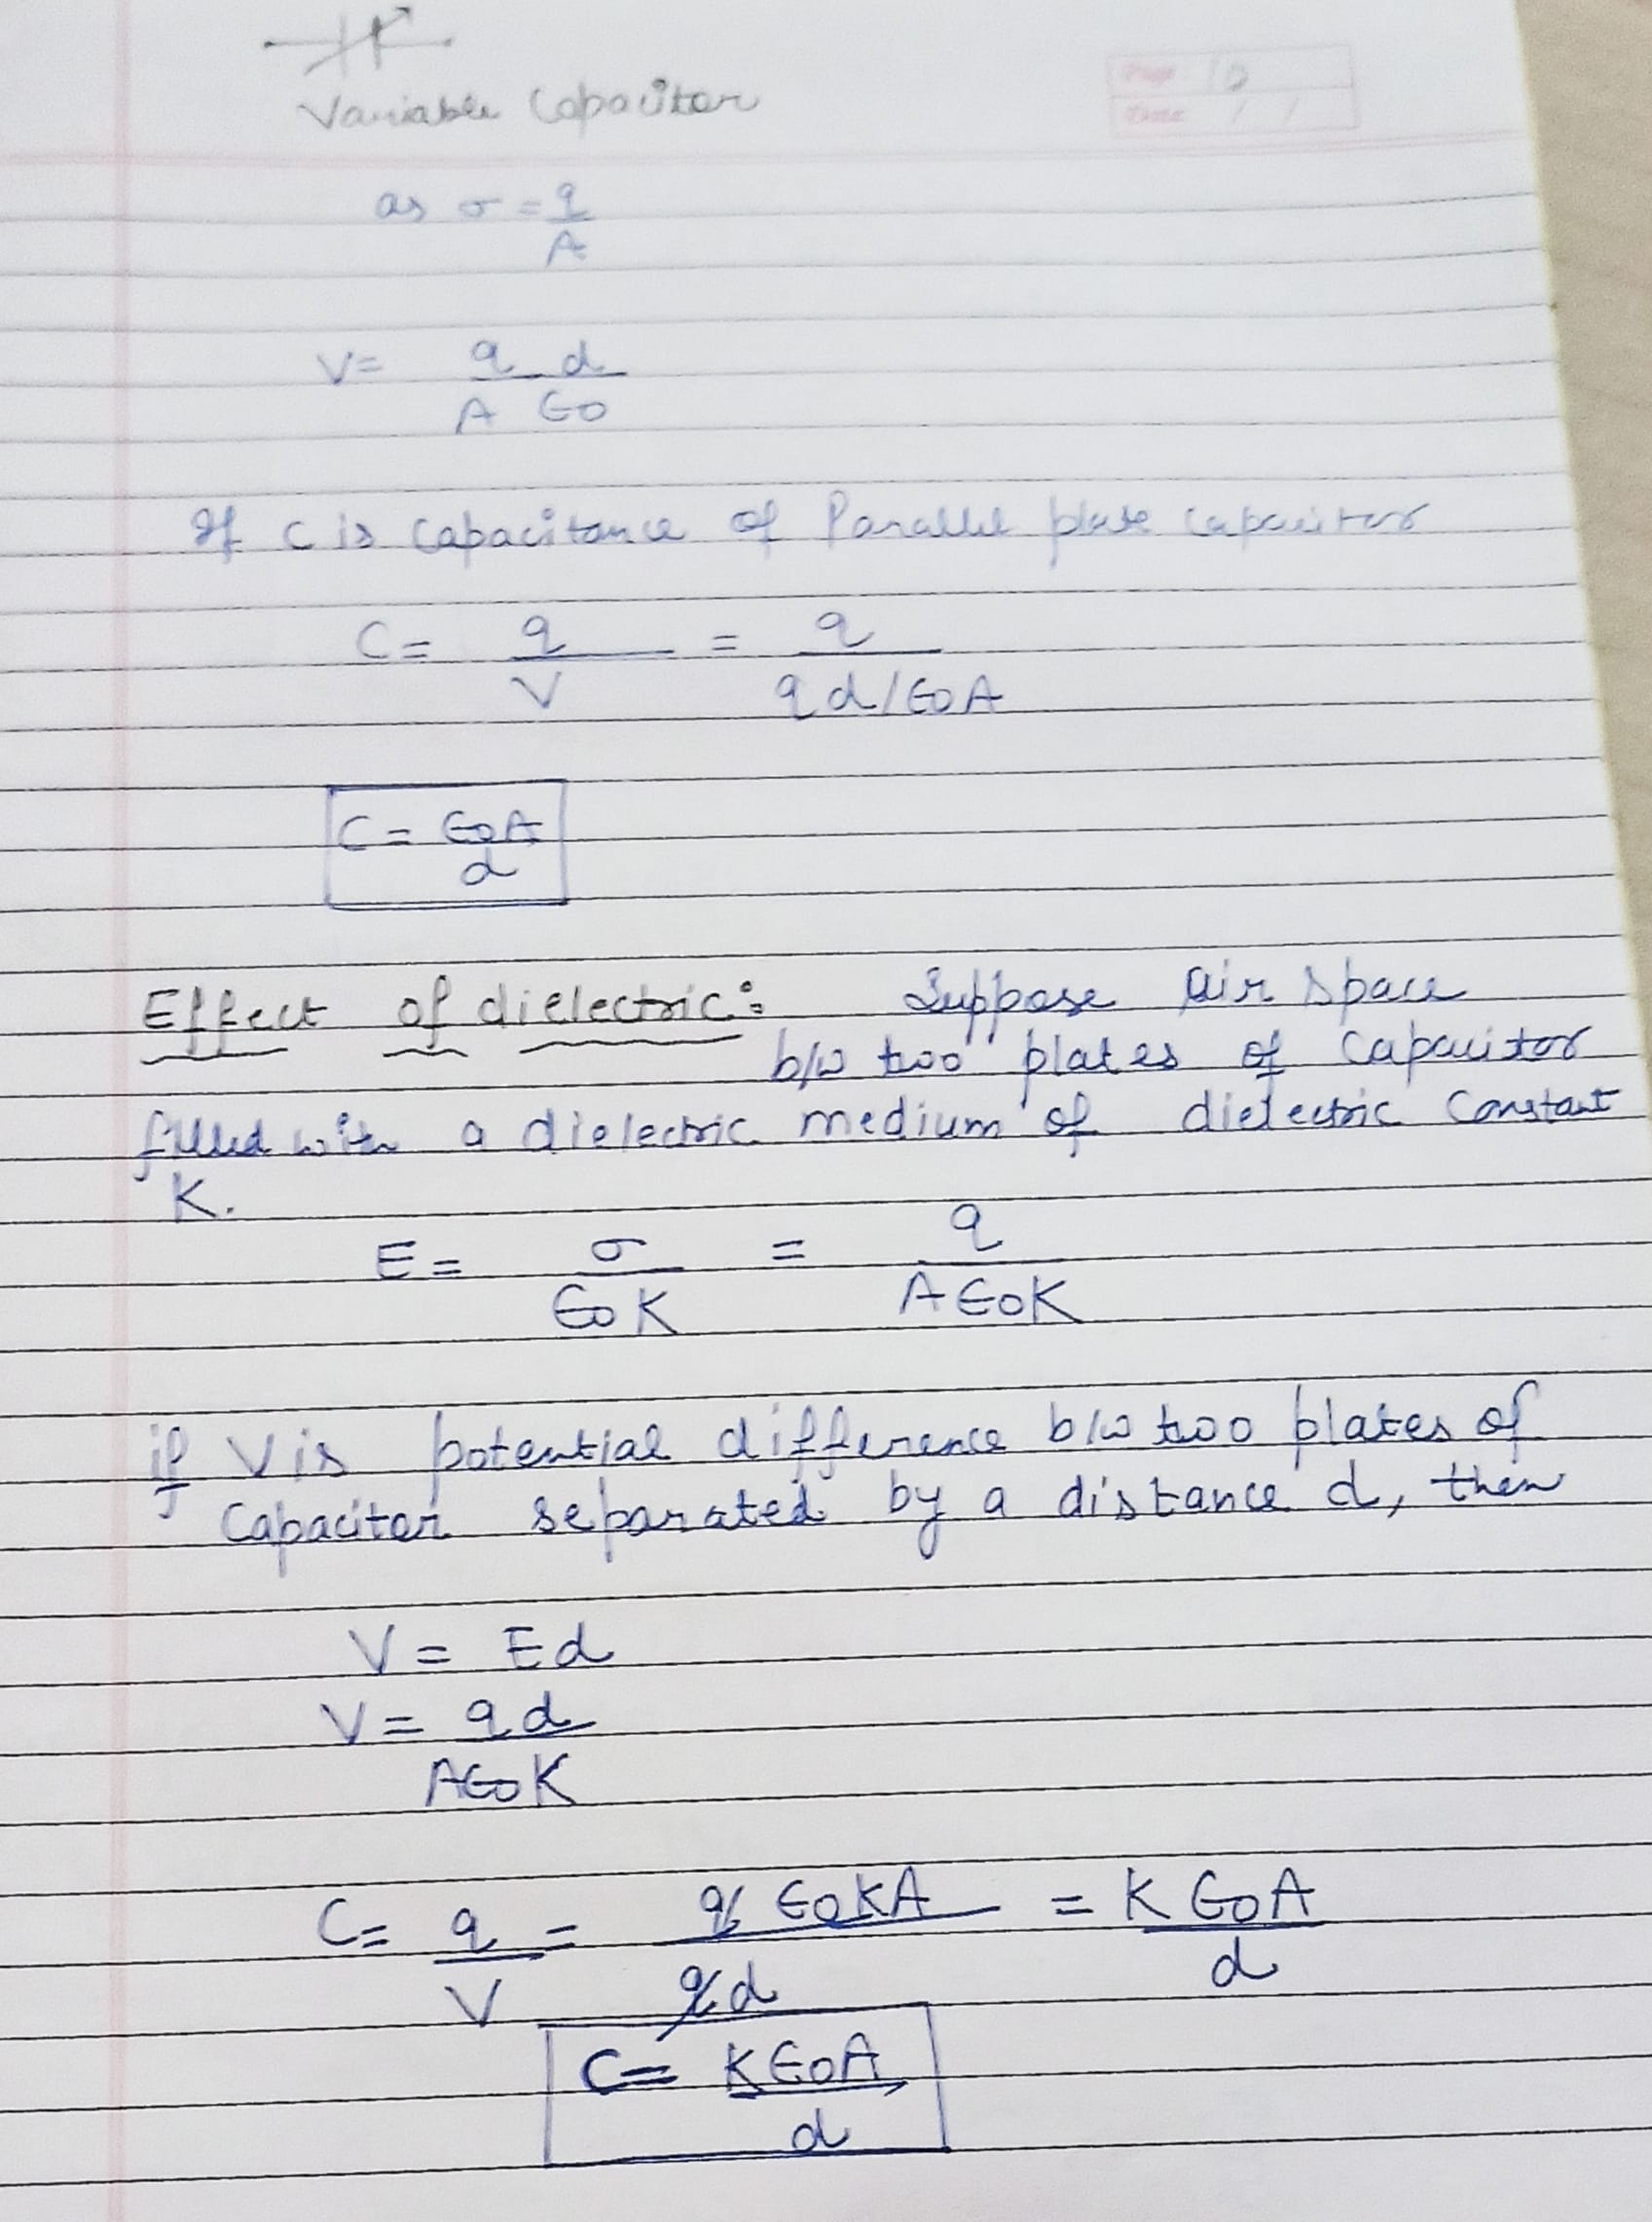 Variable Capacitor
Page 10
Date / /
as σ = q/A
V = q d / A ε0
If C is capacitance of Parallel plate capacitor
C = q/V = q / q d/ε0A
C = ε0A/d
Effect of dielectric: Suppose air space
b/w two plates of capacitor
filled with a dielectric medium of dielectric constant
K.
E = σ/ε0K = q/Aε0K
if V is potential difference b/w two plates of
Capacitor separated by a distance d, then
V = Ed
V = qd/Aε0K
C = q/V = q ε0KA/qd = K ε0A/d
C = Kε0A/d